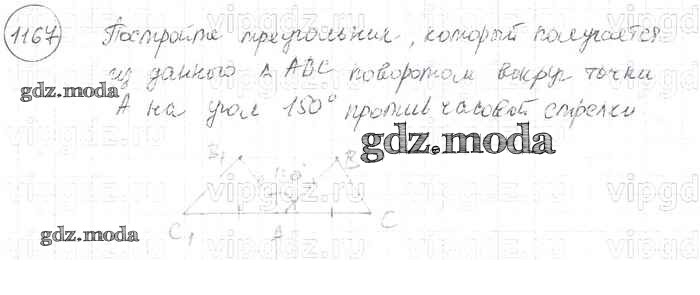 1167 Постройте треугольник, который получается
из данного △ ABC поворотом вокруг точки
gdz.moda
А на угол 150° против часовой стрелки
gdz.moda
B₁ B
gdz.moda
C₁ A C
vipgdz.ru